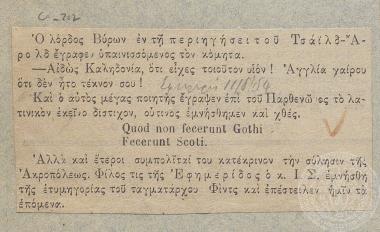 Ὁ λόρδος Βύρων ἐν τῇ περιηγήσει τοῦ Τσάϊλδ-Ἁ-
ρολδ ἔγραφεν ὑπαινισσόμενος τὸν κόμητα.
—Αἰδὼς Καληδονία, ὅτι εἶχες τοιοῦτον υἱόν! Ἀγγλία χαίρου
ὅτι δὲν ἦτο τέκνον σου!
Καὶ ὁ αὐτὸς μέγας ποιητὴς ἔγραψεν ἐπὶ τοῦ Παρθενῶνος τὸ λα-
τινικὸν ἐκεῖνο δίστιχον, οὗτινος ἐμνήσθημεν καὶ χθές.
Quod non fecerunt Gothi
Fecerunt Scoti.
Ἀλλὰ καὶ ἕτεροι συμπολῖταί του κατέκρινον τὴν σύλησιν τῆς
Ἀκροπόλεως. Φίλος τις τῆς Ἐφημερίδος ὁ κ. Ι. Σ. ἐμνήσθη
τῆς ἐτυμηγορίας τοῦ ταγματάρχου Φὶντς καὶ ἐπέστειλεν ἡμῖν τὰ
ἑπόμενα.